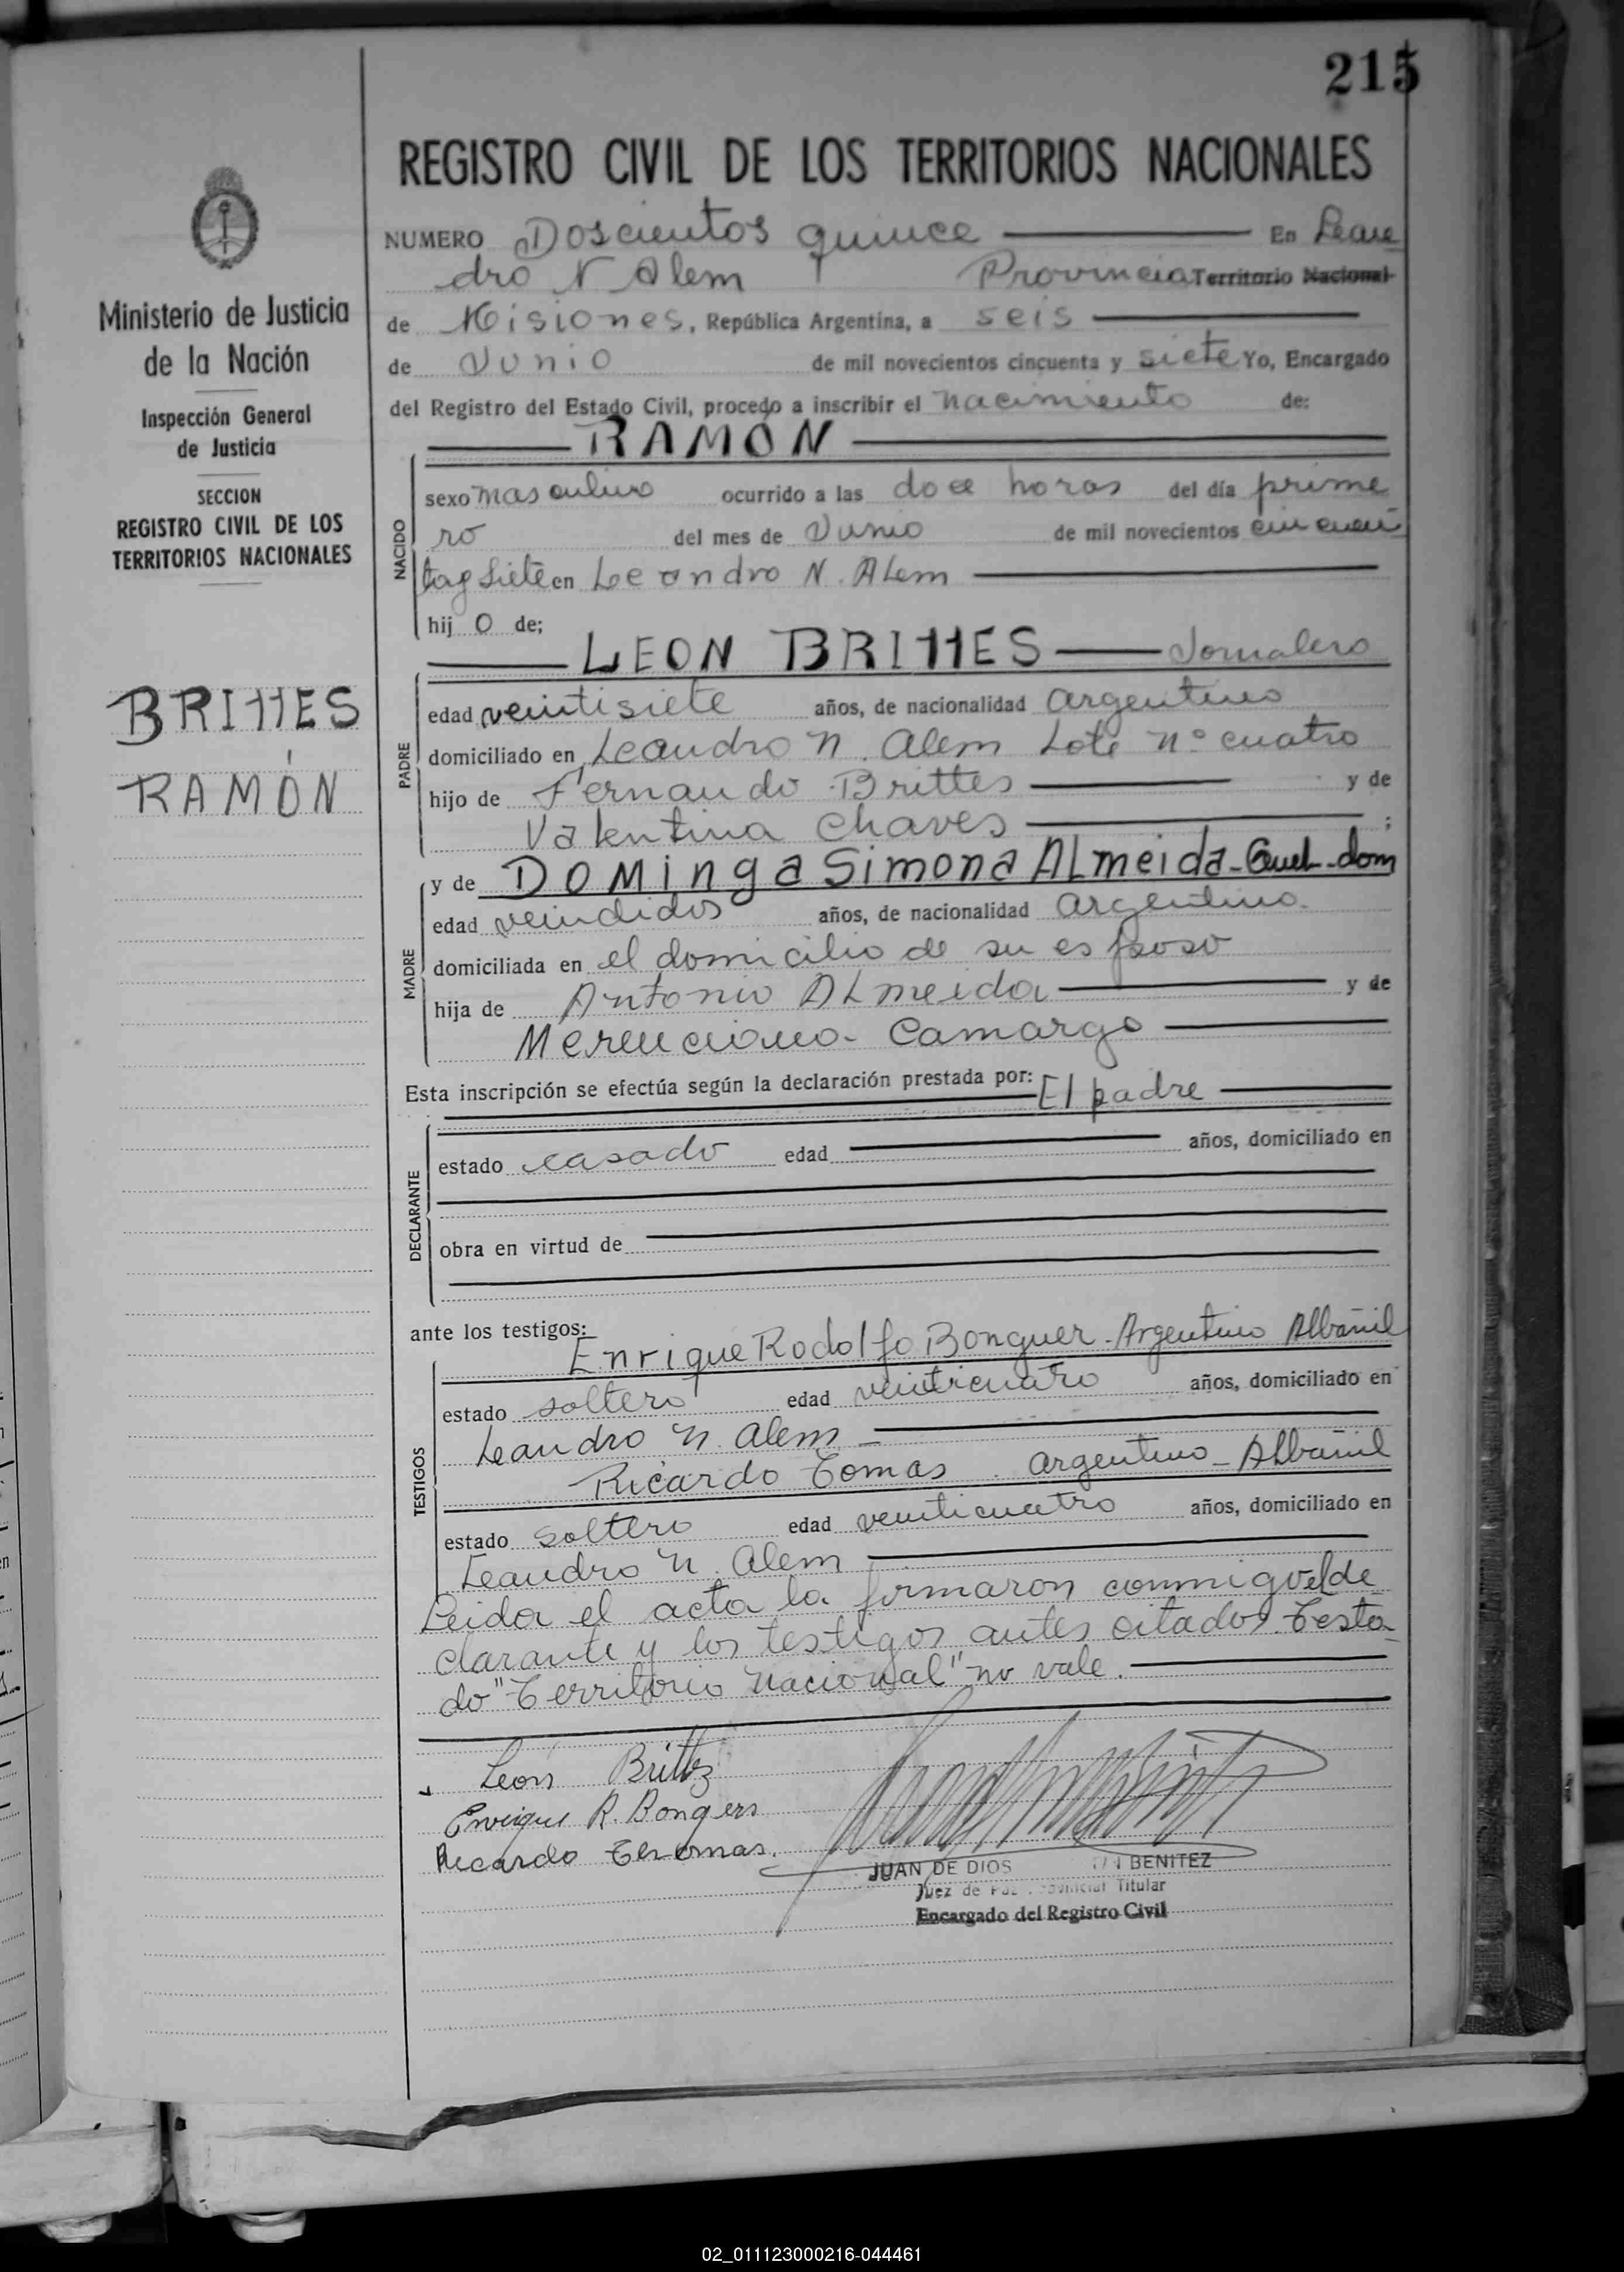 215
REGISTRO CIVIL DE LOS TERRITORIOS NACIONALES
NUMERO Doscientos quince En Lean
dro N Alem Provincia Territorio Nacional
de Misiones, República Argentina, a seis
de Junio de mil novecientos cincuenta y siete Yo, Encargado
del Registro del Estado Civil, procedo a inscribir el nacimiento de:
RAMÓN
NACIDO
sexo masculino ocurrido a las doce horas del día prime
ro del mes de Junio de mil novecientos cincuen
ta y siete en Leandro N. Alem
hij o de;
LEON BRITTES Jornalero
PADRE
edad veintisiete años, de nacionalidad argentino
domiciliado en Leandro N. Alem Lote Nº cuatro
hijo de Fernando Brittes y de
Valentina Chaves ;
y de Dominga Simona Almeida - Quel. dom
MADRE
edad veindidos años, de nacionalidad argentina.
domiciliada en el domicilio de su esposo
hija de Antonio Almeida y de
Merenciana Camargo
Esta inscripción se efectúa según la declaración prestada por: El padre
DECLARANTE
estado casado edad años, domiciliado en
obra en virtud de
ante los testigos:
Enrique Rodolfo Bonguer - Argentino Albañil
TESTIGOS
estado soltero edad veinticuatro años, domiciliado en
Leandro N. Alem
Ricardo Tomas. argentino - Albañil
estado soltero edad veinticuatro años, domiciliado en
Leandro N. Alem
Leida el acta la firmaron conmigo el de
clarante y los testigos antes citados. Testa
do "Territorio Nacional" no vale.
León Brittez
Enrique R. Bongers
Ricardo
JUAN DE DIOS BENITEZ
Juez de Paz Provincial Titular
Encargado del Registro Civil
Ministerio de Justicia
de la Nación
Inspección General
de Justicia
SECCION
REGISTRO CIVIL DE LOS
TERRITORIOS NACIONALES
BRITTES
RAMÓN
02_011123000216-044461